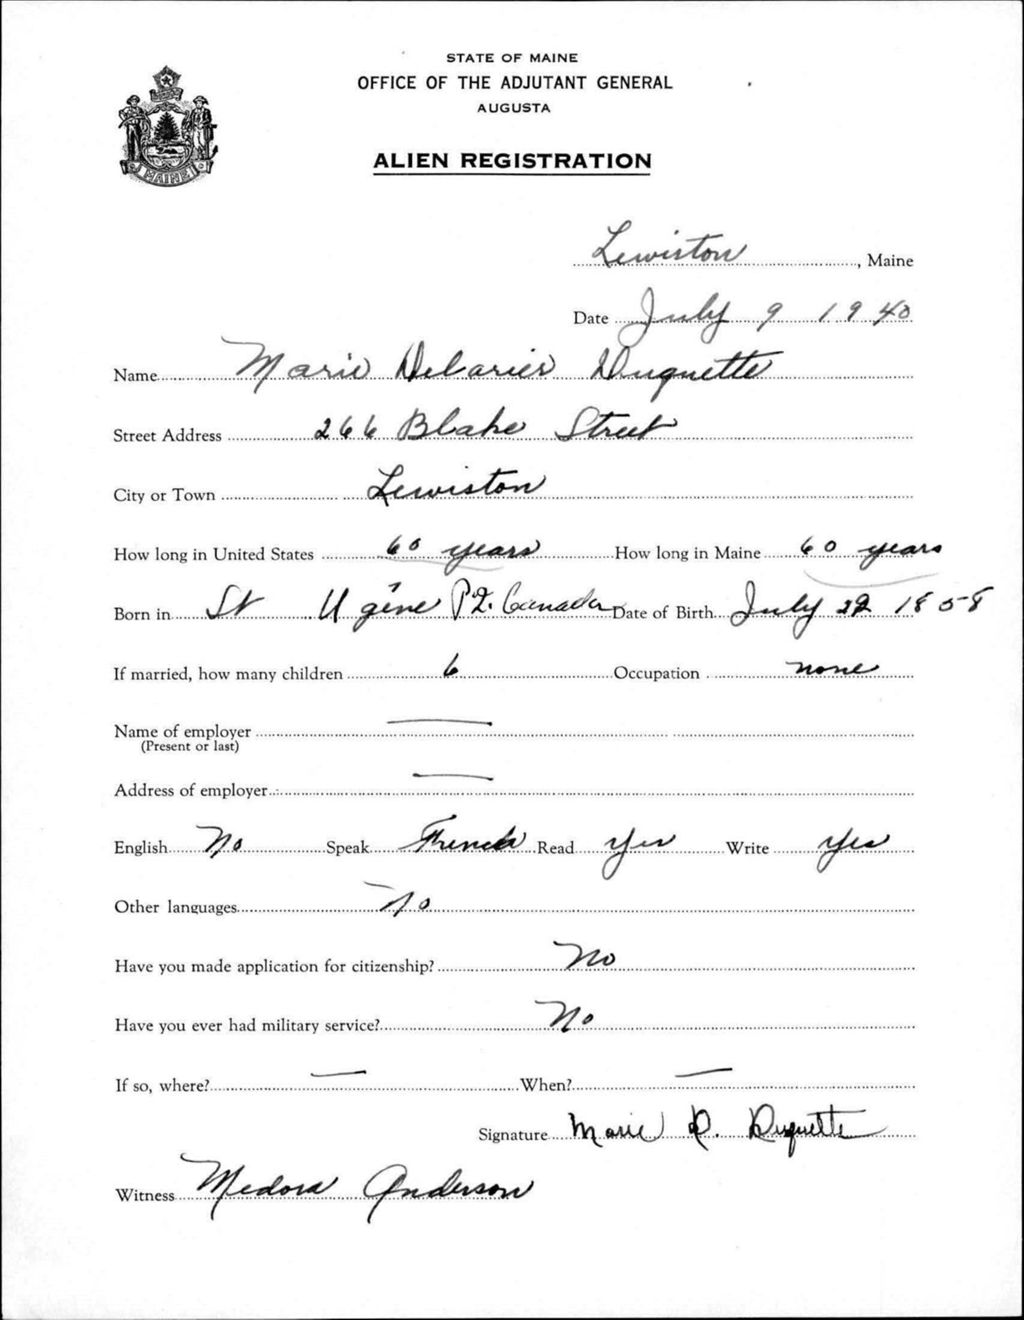 STATE OF MAINE
OFFICE OF THE ADJUTANT GENERAL
AUGUSTA
ALIEN REGISTRATION
MAINE
Lewiston, Maine
Date July 9 1940
Name Marie Delarier Duquette
Street Address 266 Blake Street
City or Town Lewiston
How long in United States 60 years How long in Maine 60 years
Born in St Ugène P.Q. Canada Date of Birth July 22 1858
If married, how many children 6 Occupation none
Name of employer
(Present or last)
Address of employer
English No Speak French Read Yes Write Yes
Other languages No
Have you made application for citizenship? No
Have you ever had military service? No
If so, where? — When? —
Signature Marie D. Duquette
Witness Medora Anderson